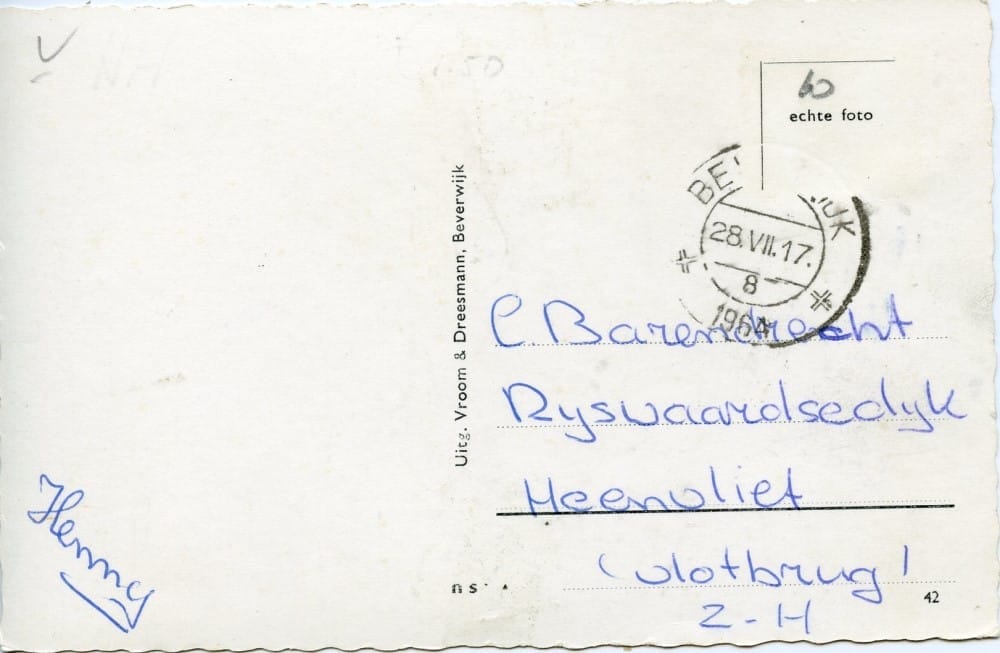 V
NH
1.50
60
echte foto
BE JK
28.VII.17.
8
1964
Uitg. Vroom & Dreesmann, Beverwijk
C Barendrecht
Ryswaardsedyk
Heenvliet
(vlotbrug)
Z-H
Henny
ns
42